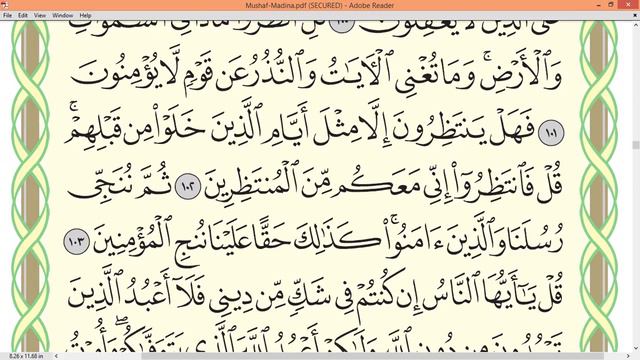 Mushaf-Madina.pdf (SECURED) - Adobe Reader
File Edit View Window Help
عَلَى ٱلَّذِينَ لَا يَعْقِلُونَ ١٠٠ قُلِ ٱنظُرُوا۟ مَاذَا فِى ٱلسَّمَٰوَٰتِ
وَٱلْأَرْضِ ۚ وَمَا تُغْنِى ٱلْءَايَٰتُ وَٱلنُّذُرُ عَن قَوْمٍ لَّا يُؤْمِنُونَ
١٠١ فَهَلْ يَنتَظِرُونَ إِلَّا مِثْلَ أَيَّامِ ٱلَّذِينَ خَلَوْا۟ مِن قَبْلِهِمْ ۚ
قُلْ فَٱنتَظِرُوٓا۟ إِنِّى مَعَكُم مِّنَ ٱلْمُنتَظِرِينَ ١٠٢ ثُمَّ نُنَجِّى
رُسُلَنَا وَٱلَّذِينَ ءَامَنُوا۟ ۚ كَذَٰلِكَ حَقًّا عَلَيْنَا نُنجِ ٱلْمُؤْمِنِينَ ١٠٣
قُلْ يَٰٓأَيُّهَا ٱلنَّاسُ إِن كُنتُمْ فِى شَكٍّ مِّن دِينِى فَلَآ أَعْبُدُ ٱلَّذِينَ
تَعْبُدُونَ مِن دُونِ ٱللَّهِ وَلَٰكِنْ أَعْبُدُ ٱللَّهَ ٱلَّذِى يَتَوَفَّىٰكُمْ ۖ وَأُمِرْتُ
8.26 x 11.68 in